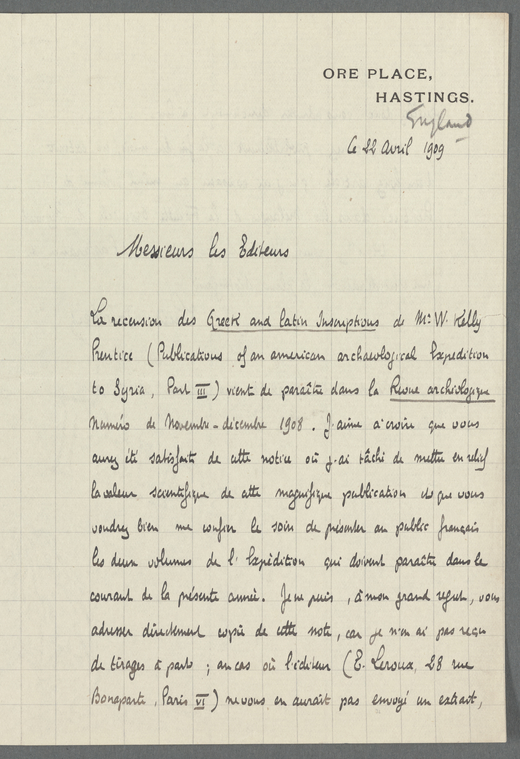 ORE PLACE,
HASTINGS.
England
le 22 Avril 1909
Messieurs les Editeurs
La recension des Greek and Latin Inscriptions de Mr. W. Kelly
Prentice (Publications of an american archaeological Expedition
to Syria, Part III) vient de paraître dans la Revue archéologique
numéro de Novembre-décembre 1908. J'aime à croire que vous
aurez été satisfaits de cette notice où j'ai tâché de mettre en relief
la valeur scientifique de cette magnifique publication et que vous
voudrez bien me confier le soin de présenter au public français
les deux volumes de l'Expédition qui doivent paraître dans le
courant de la présente année. Je ne puis, à mon grand regret, vous
adresser directement copie de cette note, car je n'en ai pas reçu
de tirages à part ; au cas où l'éditeur (E. Leroux, 28 rue
Bonaparte, Paris VI) ne vous en aurait pas envoyé un extrait,